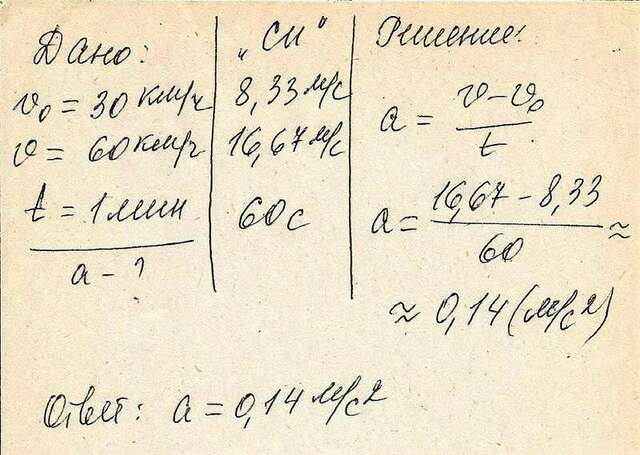 Дано:
v₀ = 30 км/ч
v = 60 км/ч
t = 1 мин
a - ?
„СИ"
8,33 м/с
16,67 м/с
60 с
Решение:
a = (v - v₀) / t
a = (16,67 - 8,33) / 60 ≈
≈ 0,14 (м/с²)
Ответ: a = 0,14 м/с²